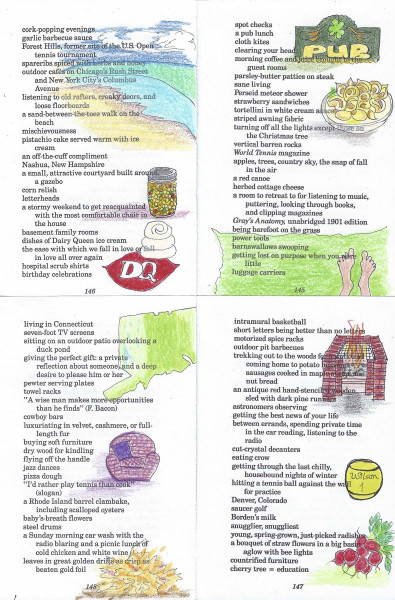 cork-popping evenings
garlic barbecue sauce
Forest Hills, former site of the U.S. Open
tennis tournament
spareribs spiced with herbs and honey
outdoor cafés on Chicago's Rush Street
and New York City's Columbus
Avenue
listening to old rafters, creaky doors, and
loose floorboards
a sand-between-the-toes walk on the
beach
mischievousness
pistachio cake served warm with ice
cream
an off-the-cuff compliment
Nashua, New Hampshire
a small, attractive courtyard built around
a gazebo
corn relish
letterheads
a stormy weekend to get reacquainted
with the most comfortable chair in
the house
basement family rooms
dishes of Dairy Queen ice cream
the ease with which we fall in love or fall
in love all over again
hospital scrub shirts
birthday celebrations
DQ
146
spot checks
a pub lunch
cloth kites
clearing your head
morning coffee and juice brought to the
guest rooms
parsley-butter patties on steak
sane living
Perseid meteor shower
strawberry sandwiches
tortellini in white cream sauce
striped awning fabric
turning off all the lights except those on
the Christmas tree
vertical barren rocks
World Tennis magazine
apples, trees, country sky, the snap of fall
in the air
a red canoe
herbed cottage cheese
a room to retreat to for listening to music,
puttering, looking through books,
and clipping magazines
Gray's Anatomy, unabridged 1901 edition
being barefoot on the grass
power tools
barnswallows swooping
getting lost on purpose when you were
little
luggage carriers
PUB
145
living in Connecticut
seven-foot TV screens
sitting on an outdoor patio overlooking a
duck pond
giving the perfect gift: a private
reflection about someone, and a deep
desire to please him or her
pewter serving plates
towel racks
"A wise man makes more opportunities
than he finds" (F. Bacon)
cowboy bars
luxuriating in velvet, cashmere, or full-
length fur
buying soft furniture
dry wood for kindling
flying off the handle
jazz dances
pizza dough
"I'd rather play tennis than cook"
(slogan)
a Rhode Island barrel clambake,
including scalloped oysters
baby's-breath flowers
steel drums
a Sunday morning car wash with the
radio blaring and a picnic lunch of
cold chicken and white wine
leaves in great golden drifts as crisp as
beaten gold foil
148
intramural basketball
short letters being better than no letters
motorized spice racks
outdoor pit barbecues
trekking out to the woods
coming home to potato
sausages cooked in maple
nut bread
an antique red hand-stenciled wooden
sled with dark pine runners
astronomers observing
getting the best news of your life
between errands, spending private time
in the car reading, listening to the
radio
cut-crystal decanters
eating crow
getting through the last chilly,
housebound nights of winter
hitting a tennis ball against the wall
for practice
Denver, Colorado
saucer golf
Borden's milk
snugglier, snuggliest
young, spring-grown, just-picked radishes
a bouquet of straw flowers in a big basket
aglow with bee lights
countrified furniture
cherry tree = education
Wilson
1
147